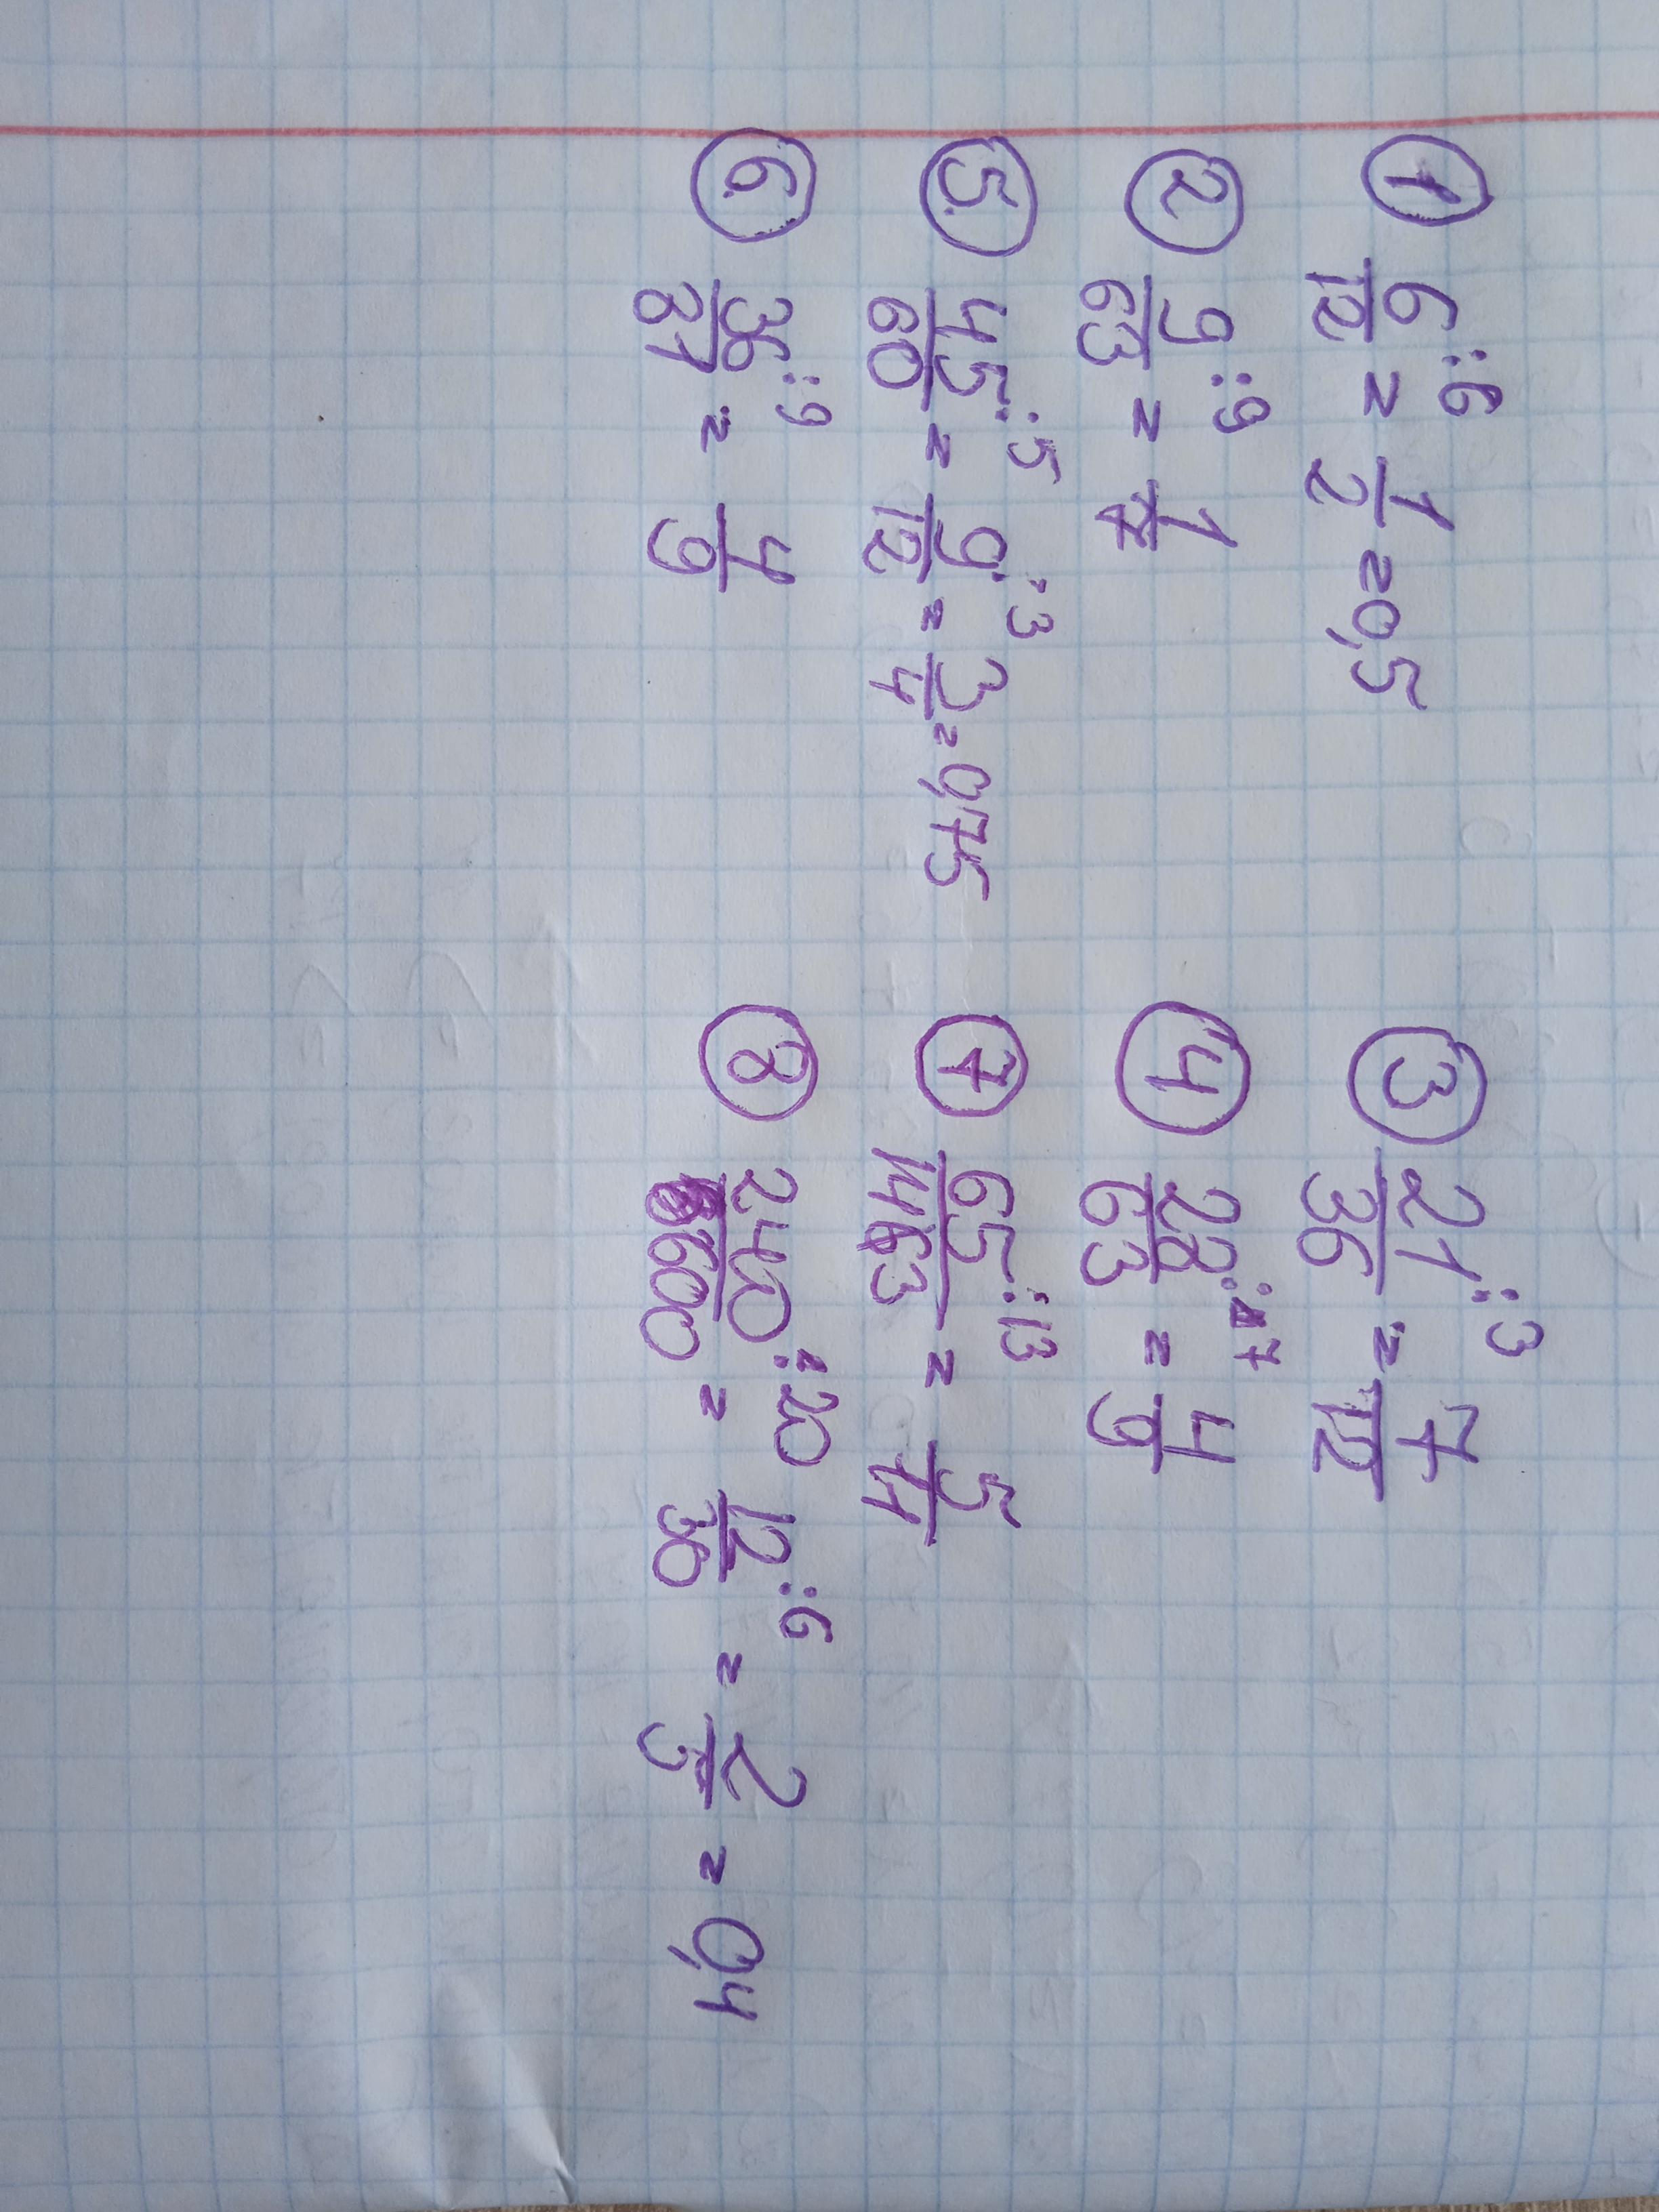 ① 6/12 :6 = 1/2 = 0,5
② 9/63 :9 = 1/7
⑤ 45/60 :5 = 9/12 :3 = 3/4 = 0,75
⑥ 36/81 :9 = 4/9
③ 21/36 :3 = 7/12
④ 28/63 :7 = 4/9
⑦ 65/143 :13 = 5/11
⑧ 240/600 :20 = 12/30 :6 = 2/5 = 0,4